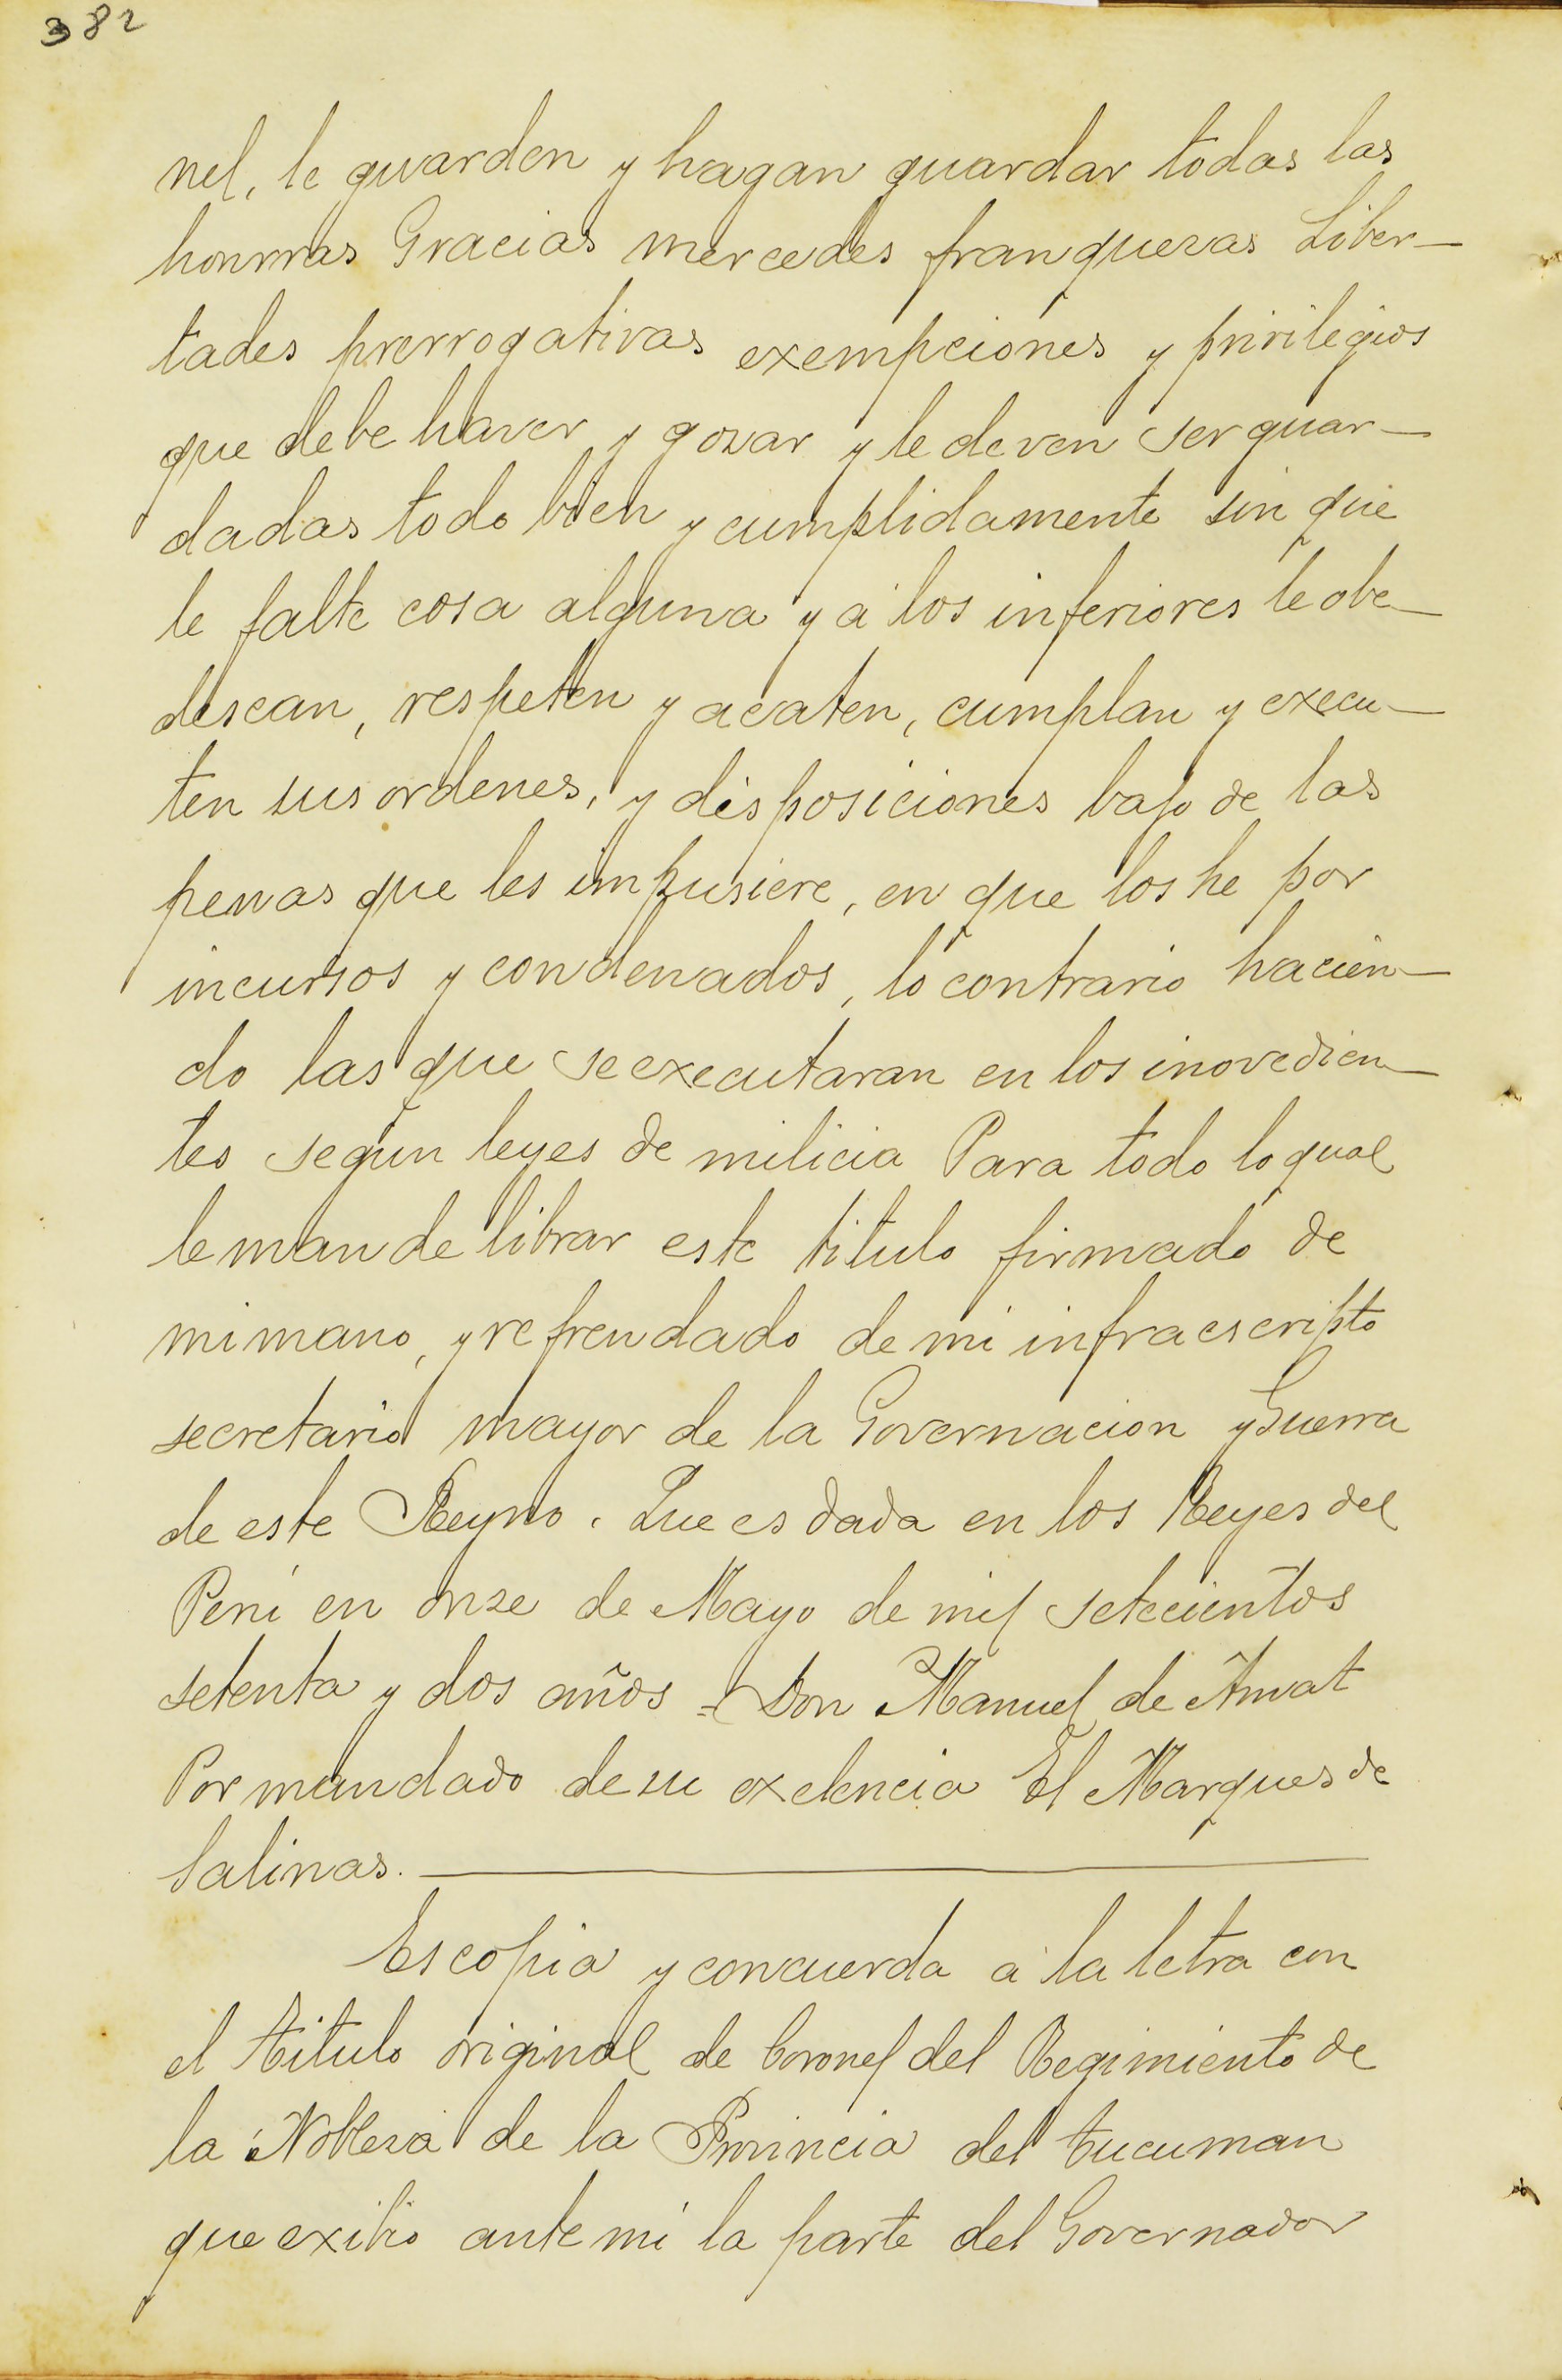 382
nel, le guarden y hagan guardar todas las
honrras Gracias mercedes franquezas Liber-
tades prerrogativas exempciones y privilegios
que debe haver y gozar y le deven ser guar-
dadas todo bien y cumplidamente sin que
le falte cosa alguna y á los inferiores le obe-
descan, respeten y acaten, cumplan y execu-
ten sus ordenes, y disposiciones bajo de las
penas que les impusiere, en que los he por
incursos y condenados, lo contrario hacien-
do las que se executaran en los inovedien-
tes según leyes de milicia Para todo lo qual
le mande librar este titulo firmado de
mi mano, y refrendado de mi infraescripto
secretario mayor de la Governacion y Guerra
de este Reyno. Que es dada en los Reyes del
Perú en onze de Mayo de mil setecientos
setenta y dos años = Don Manuel de Amat
Por mandado de su exelencia El Marques de
Salinas.
Es copia y concuerda á la letra con
el titulo original de Coronel del Regimiento de
la Nobleza de la Provincia del Tucuman
que exibio ante mí la parte del Governador